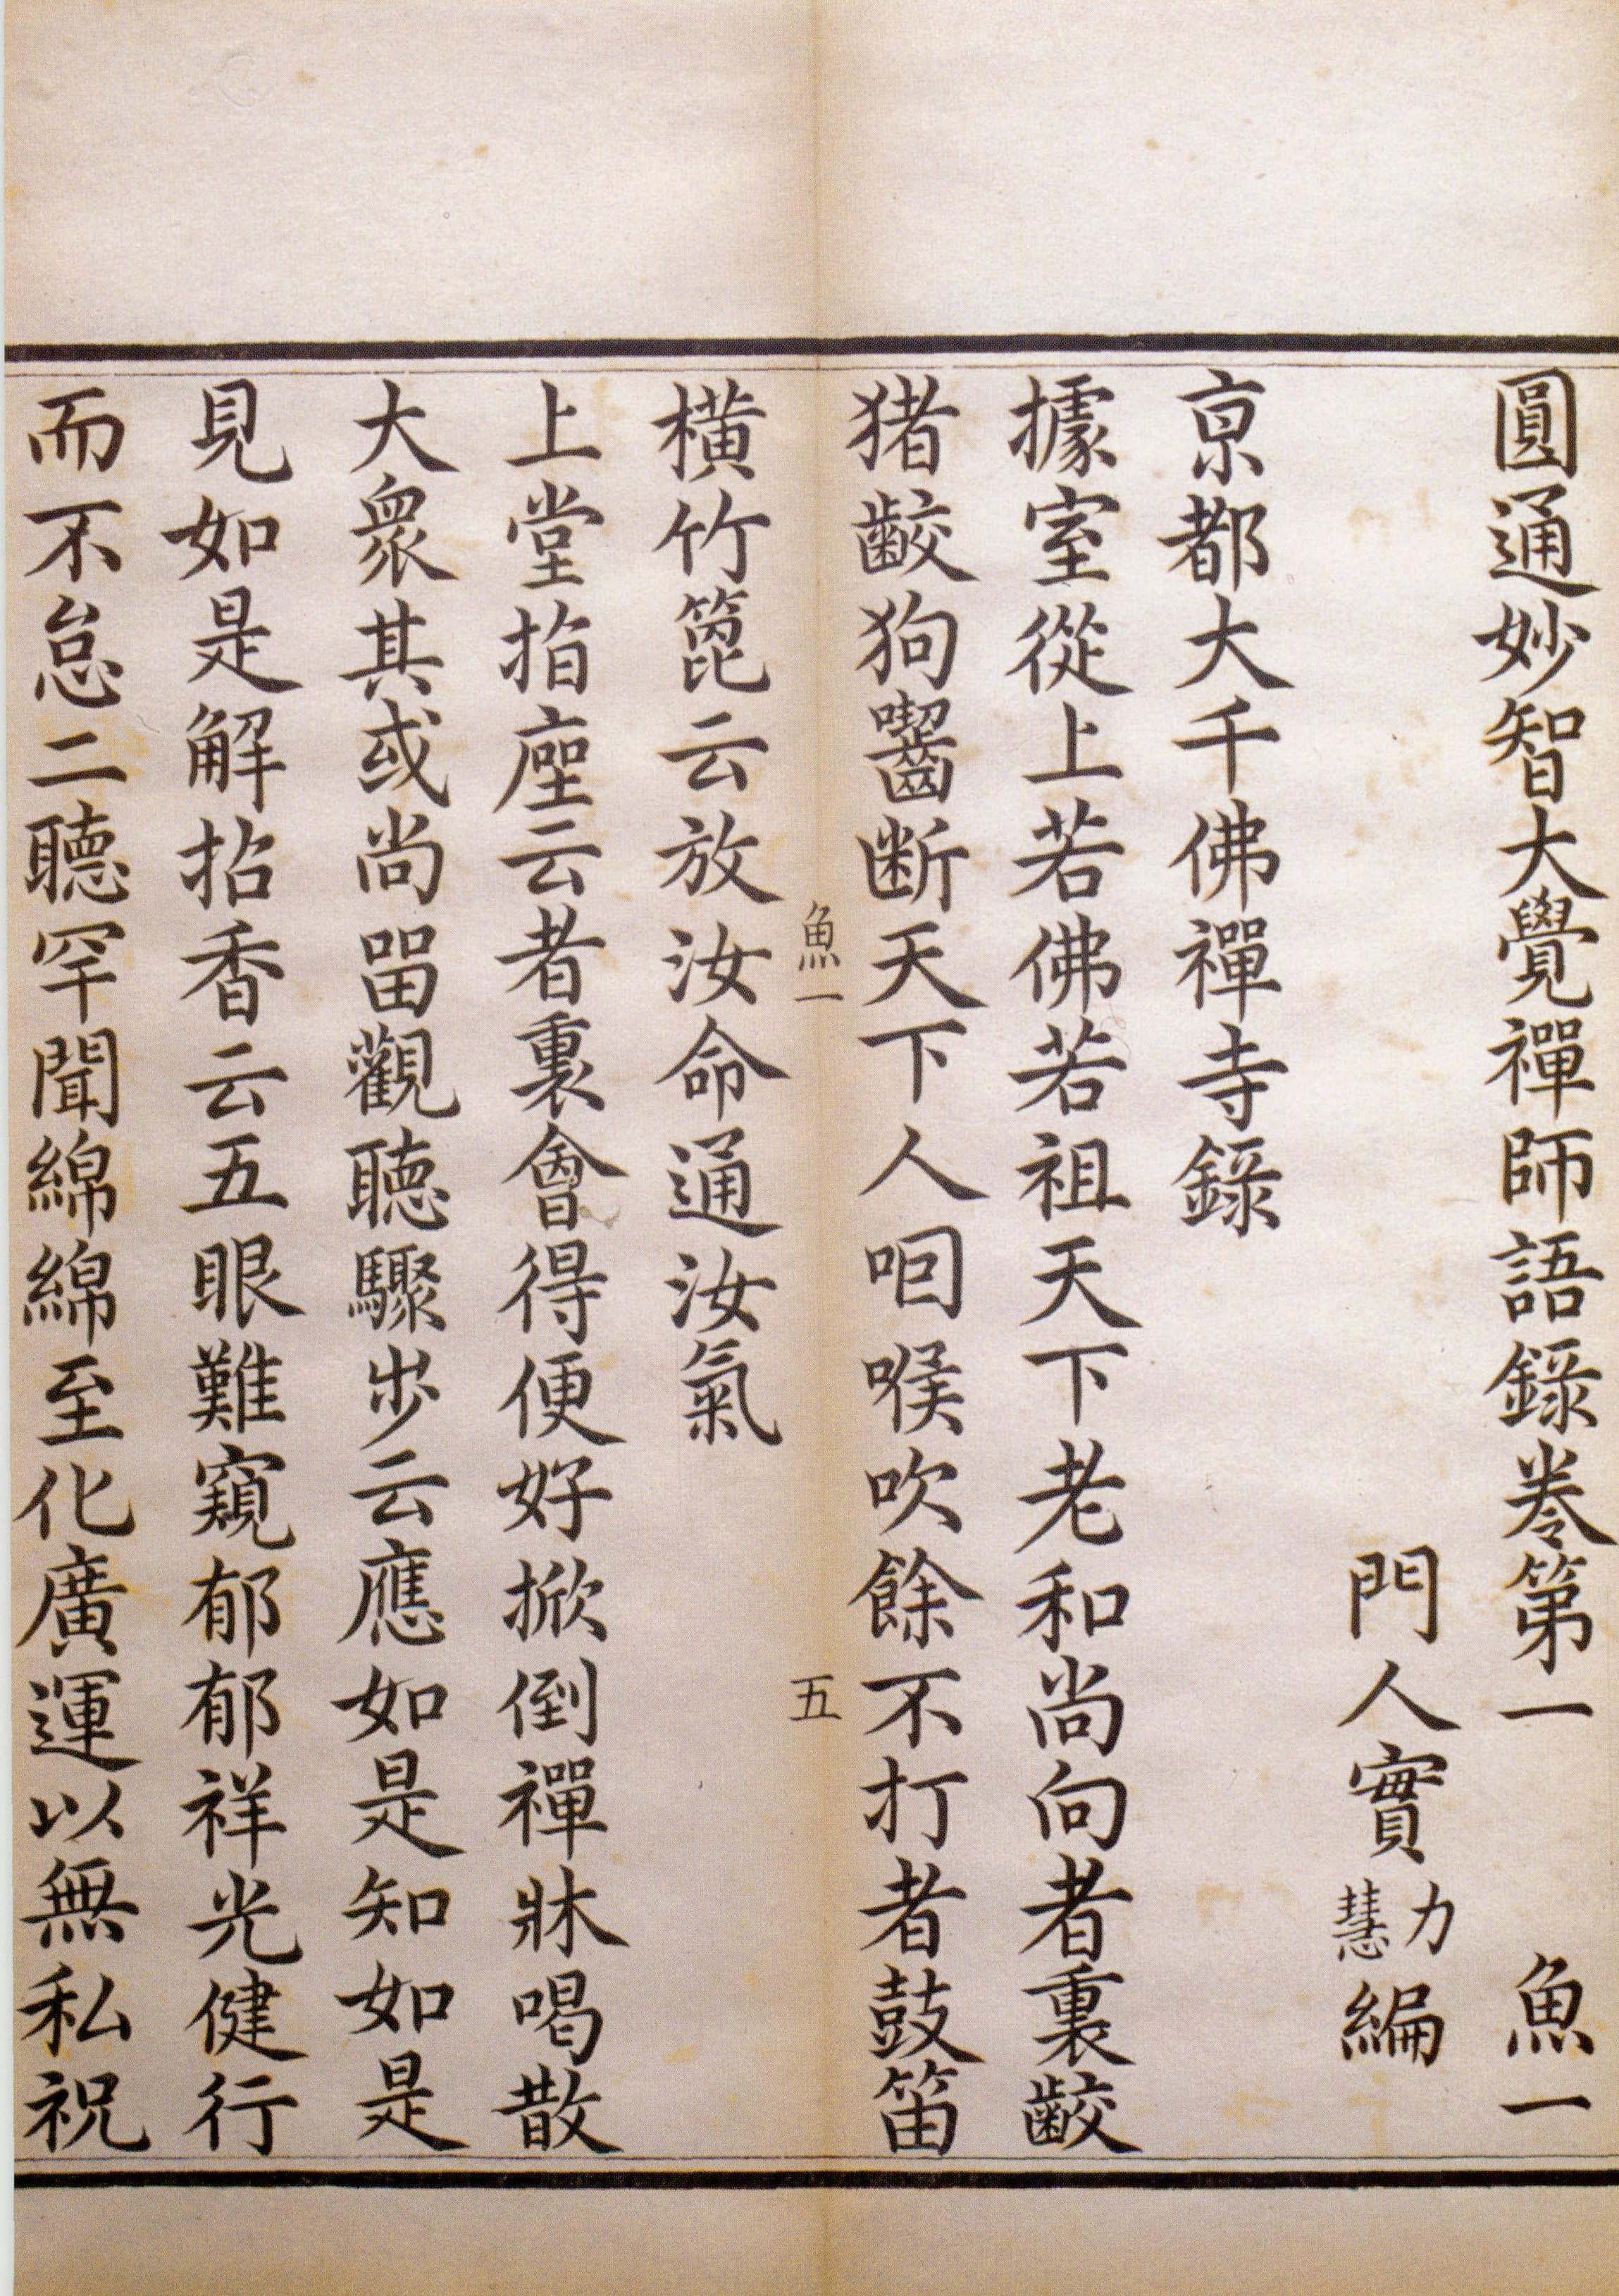 圓通妙智大覺禪師語錄卷第一　魚一
門人實力慧編
京都大千佛禪寺錄
據室從上若佛若祖天下老和尚向者裏齩
猪齩狗嚙断天下人咽喉吹餘不打者鼓笛
魚一　五
橫竹箆云放汝命通汝氣
上堂指座云者裏會得便好掀倒禪牀喝散
大衆其或尚留觀聽驟步云應如是知如是
見如是解拈香云五眼難窺郁郁祥光健行
而不怠二聽罕聞綿綿至化廣運以無私祝